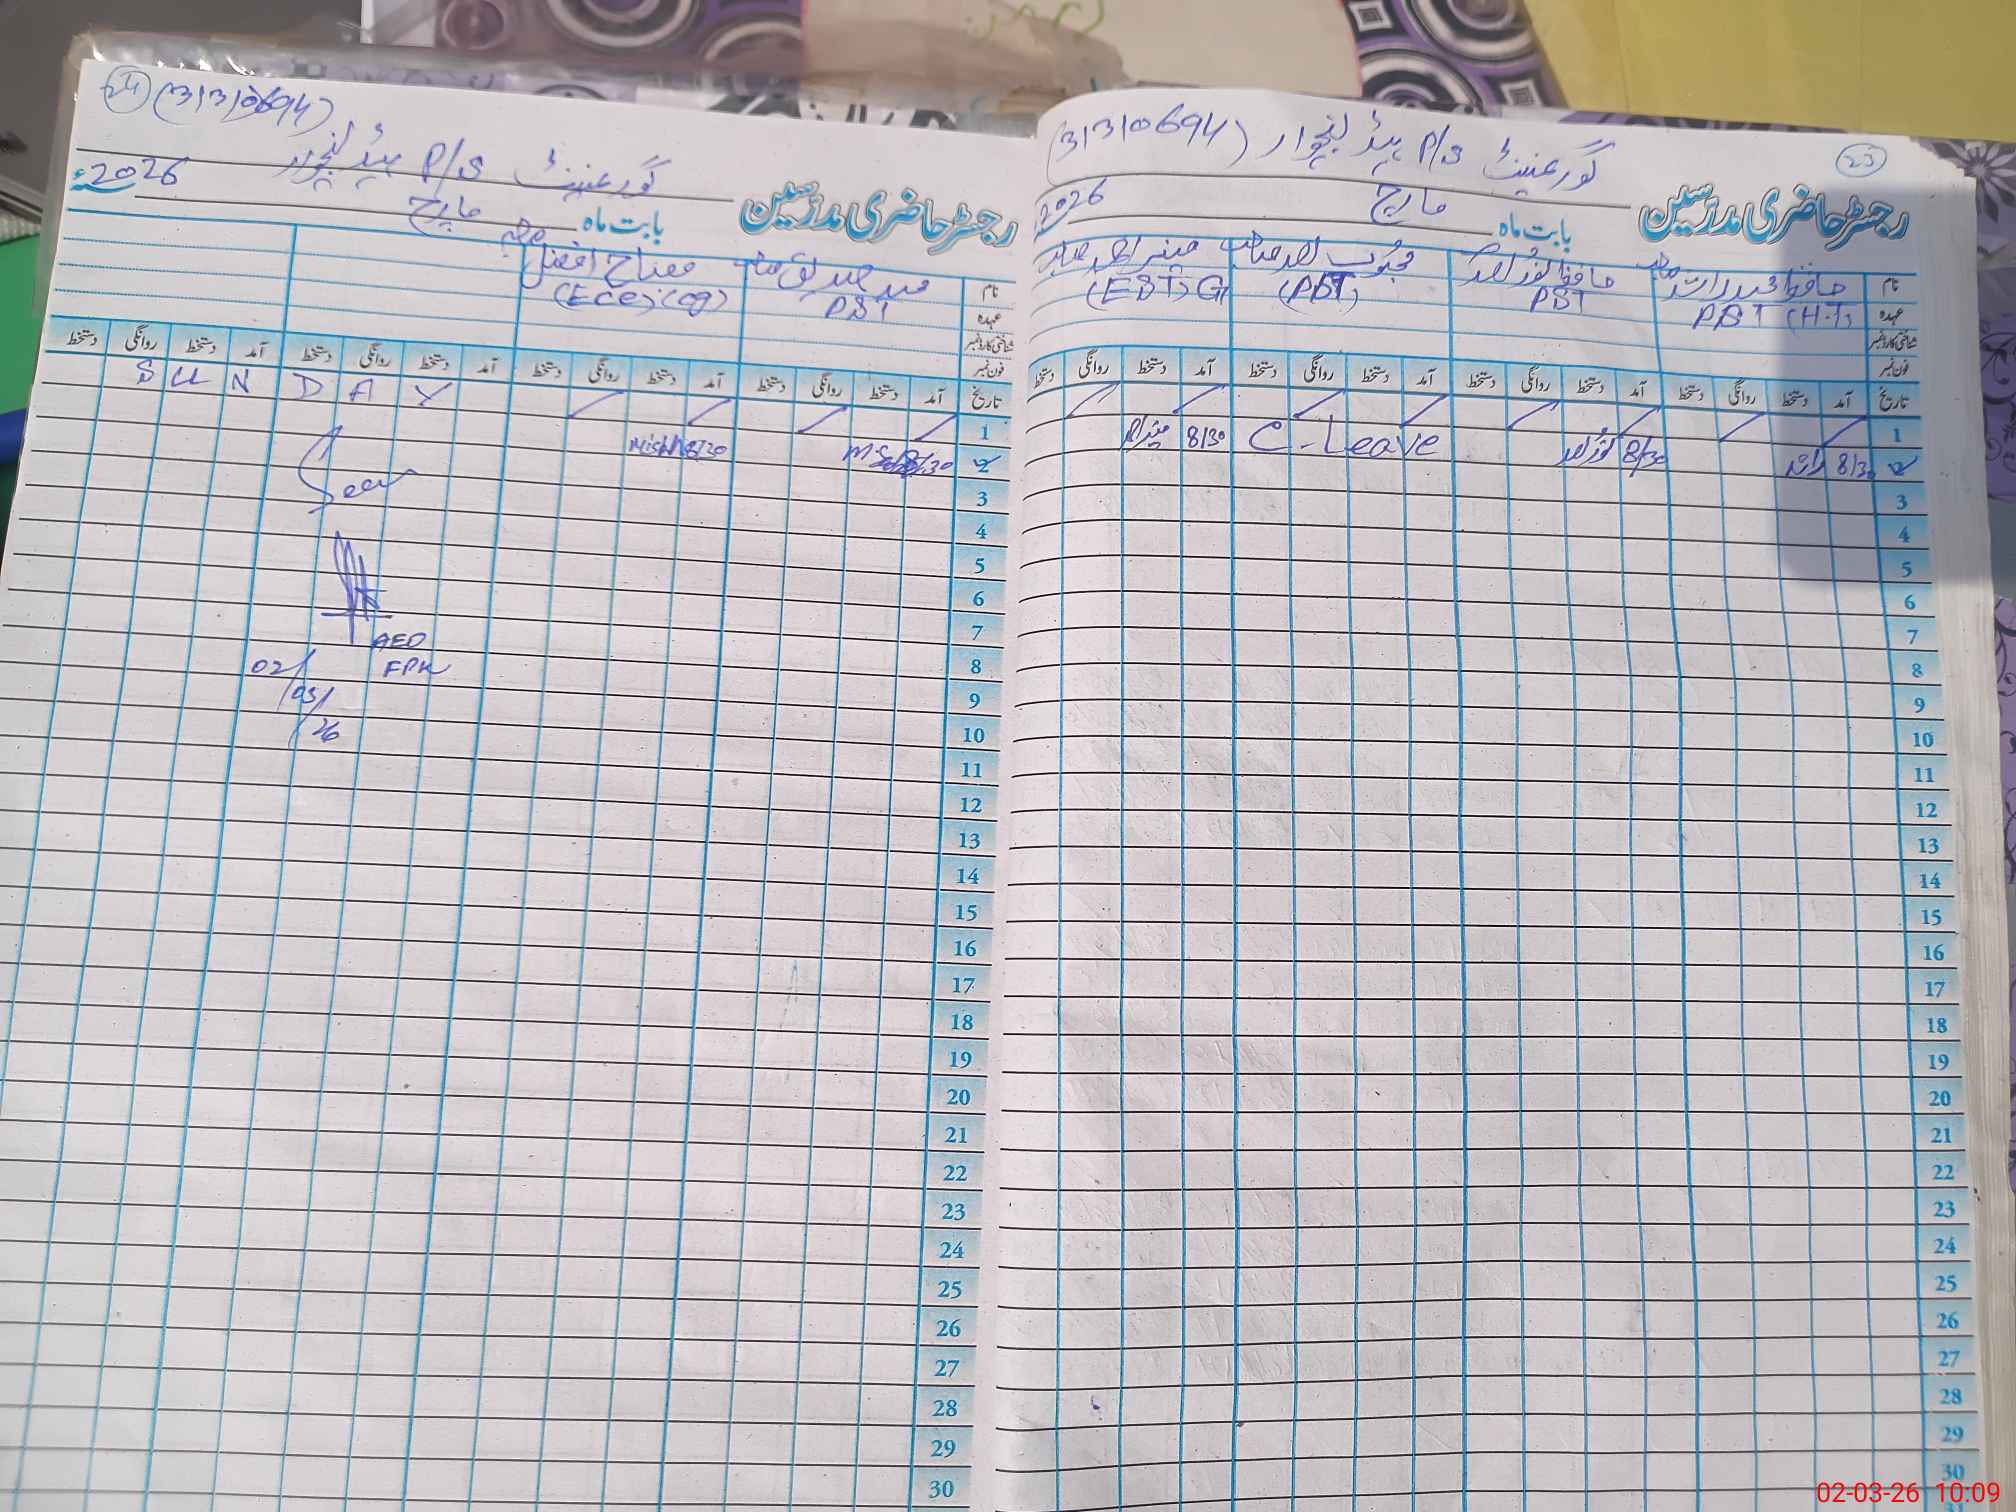 23
گورنمنٹ P/S ہیڈ پنجوار (31310694)
رجسٹر حاضری مدرسین بابت ماہ مارچ 2026
نام حافظ محمد راشد صاحب حافظ نور احمد محبوب احمد صاحب منیر احمد صاحب
عہدہ PST (H.T) PST (PST) (EST) G
شناختی کارڈ نمبر
فون نمبر
تاریخ آمد دستخط روانگی دستخط آمد دستخط روانگی دستخط آمد دستخط روانگی دستخط آمد دستخط روانگی دستخط
1
2 8/30 راشد 8/30 نور احمد C-Leave 8/30 منیر احمد
3
4
5
6
7
8
9
10
11
12
13
14
15
16
17
18
19
20
21
22
23
24
25
26
27
28
29
30
24 (31310694)
گورنمنٹ P/S ہیڈ پنجوار
رجسٹر حاضری مدرسین بابت ماہ مارچ 2026ء
نام محمد صدیق صاحب مصباح افضل صاحبہ
عہدہ PST (ECE) (cg)
شناختی کارڈ نمبر
فون نمبر
تاریخ آمد دستخط روانگی دستخط آمد دستخط روانگی دستخط آمد دستخط روانگی دستخط آمد دستخط روانگی دستخط
1 S U N D A Y
2 8/30 8/30
3 Seen
4
5
6
7 AEO
8 02/03/26
9
10
11
12
13
14
15
16
17
18
19
20
21
22
23
24
25
26
27
28
29
30
02-03-26 10:09